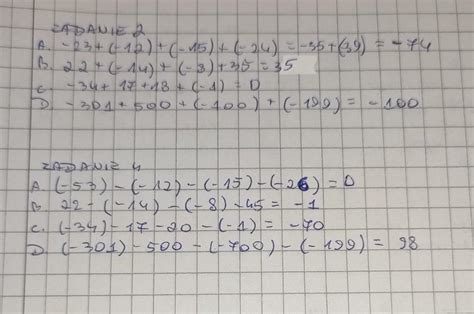 ZADANIE 2
A. -23+(-12)+(-15)+(-24)=-35+(39)=-74
B. 22+(-14)+(-8)+35=35
C. -34+17+18+(-1)=0
D. -301+500+(-100)+(-199)=-100
ZADANIE 4
A. (-53)-(-12)-(-15)-(-26)=0
B. 22-(-14)-(-8)-45=-1
C. (-34)-17-20-(-1)=-70
D. (-301)-500-(-700)-(-199)=98